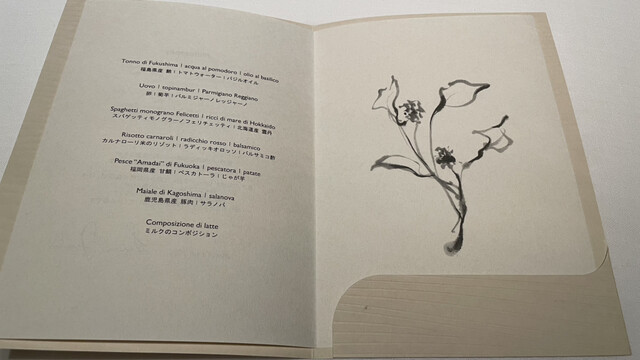 Tonno di Fukushima | acqua al pomodoro | olio al basilico
福島県産 鮪 | トマトウォーター | バジルオイル
Uovo | topinambur | Parmigiano Reggiano
卵 | 菊芋 | パルミジャーノレッジャーノ
Spaghetti monograno Felicetti | ricci di mare di Hokkaido
スパゲッティモノグラーノフェリチェッティ | 北海道産 雲丹
Risotto carnaroli | radicchio rosso | balsamico
カルナローリ米のリゾット | ラディッキオロッソ | バルサミコ酢
Pesce "Amadai" di Fukuoka | pescatora | patate
福岡県産 甘鯛 | ペスカトーラ | じゃが芋
Maiale di Kagoshima | salanova
鹿児島県産 豚肉 | サラノバ
Composizione di latte
ミルクのコンポジション